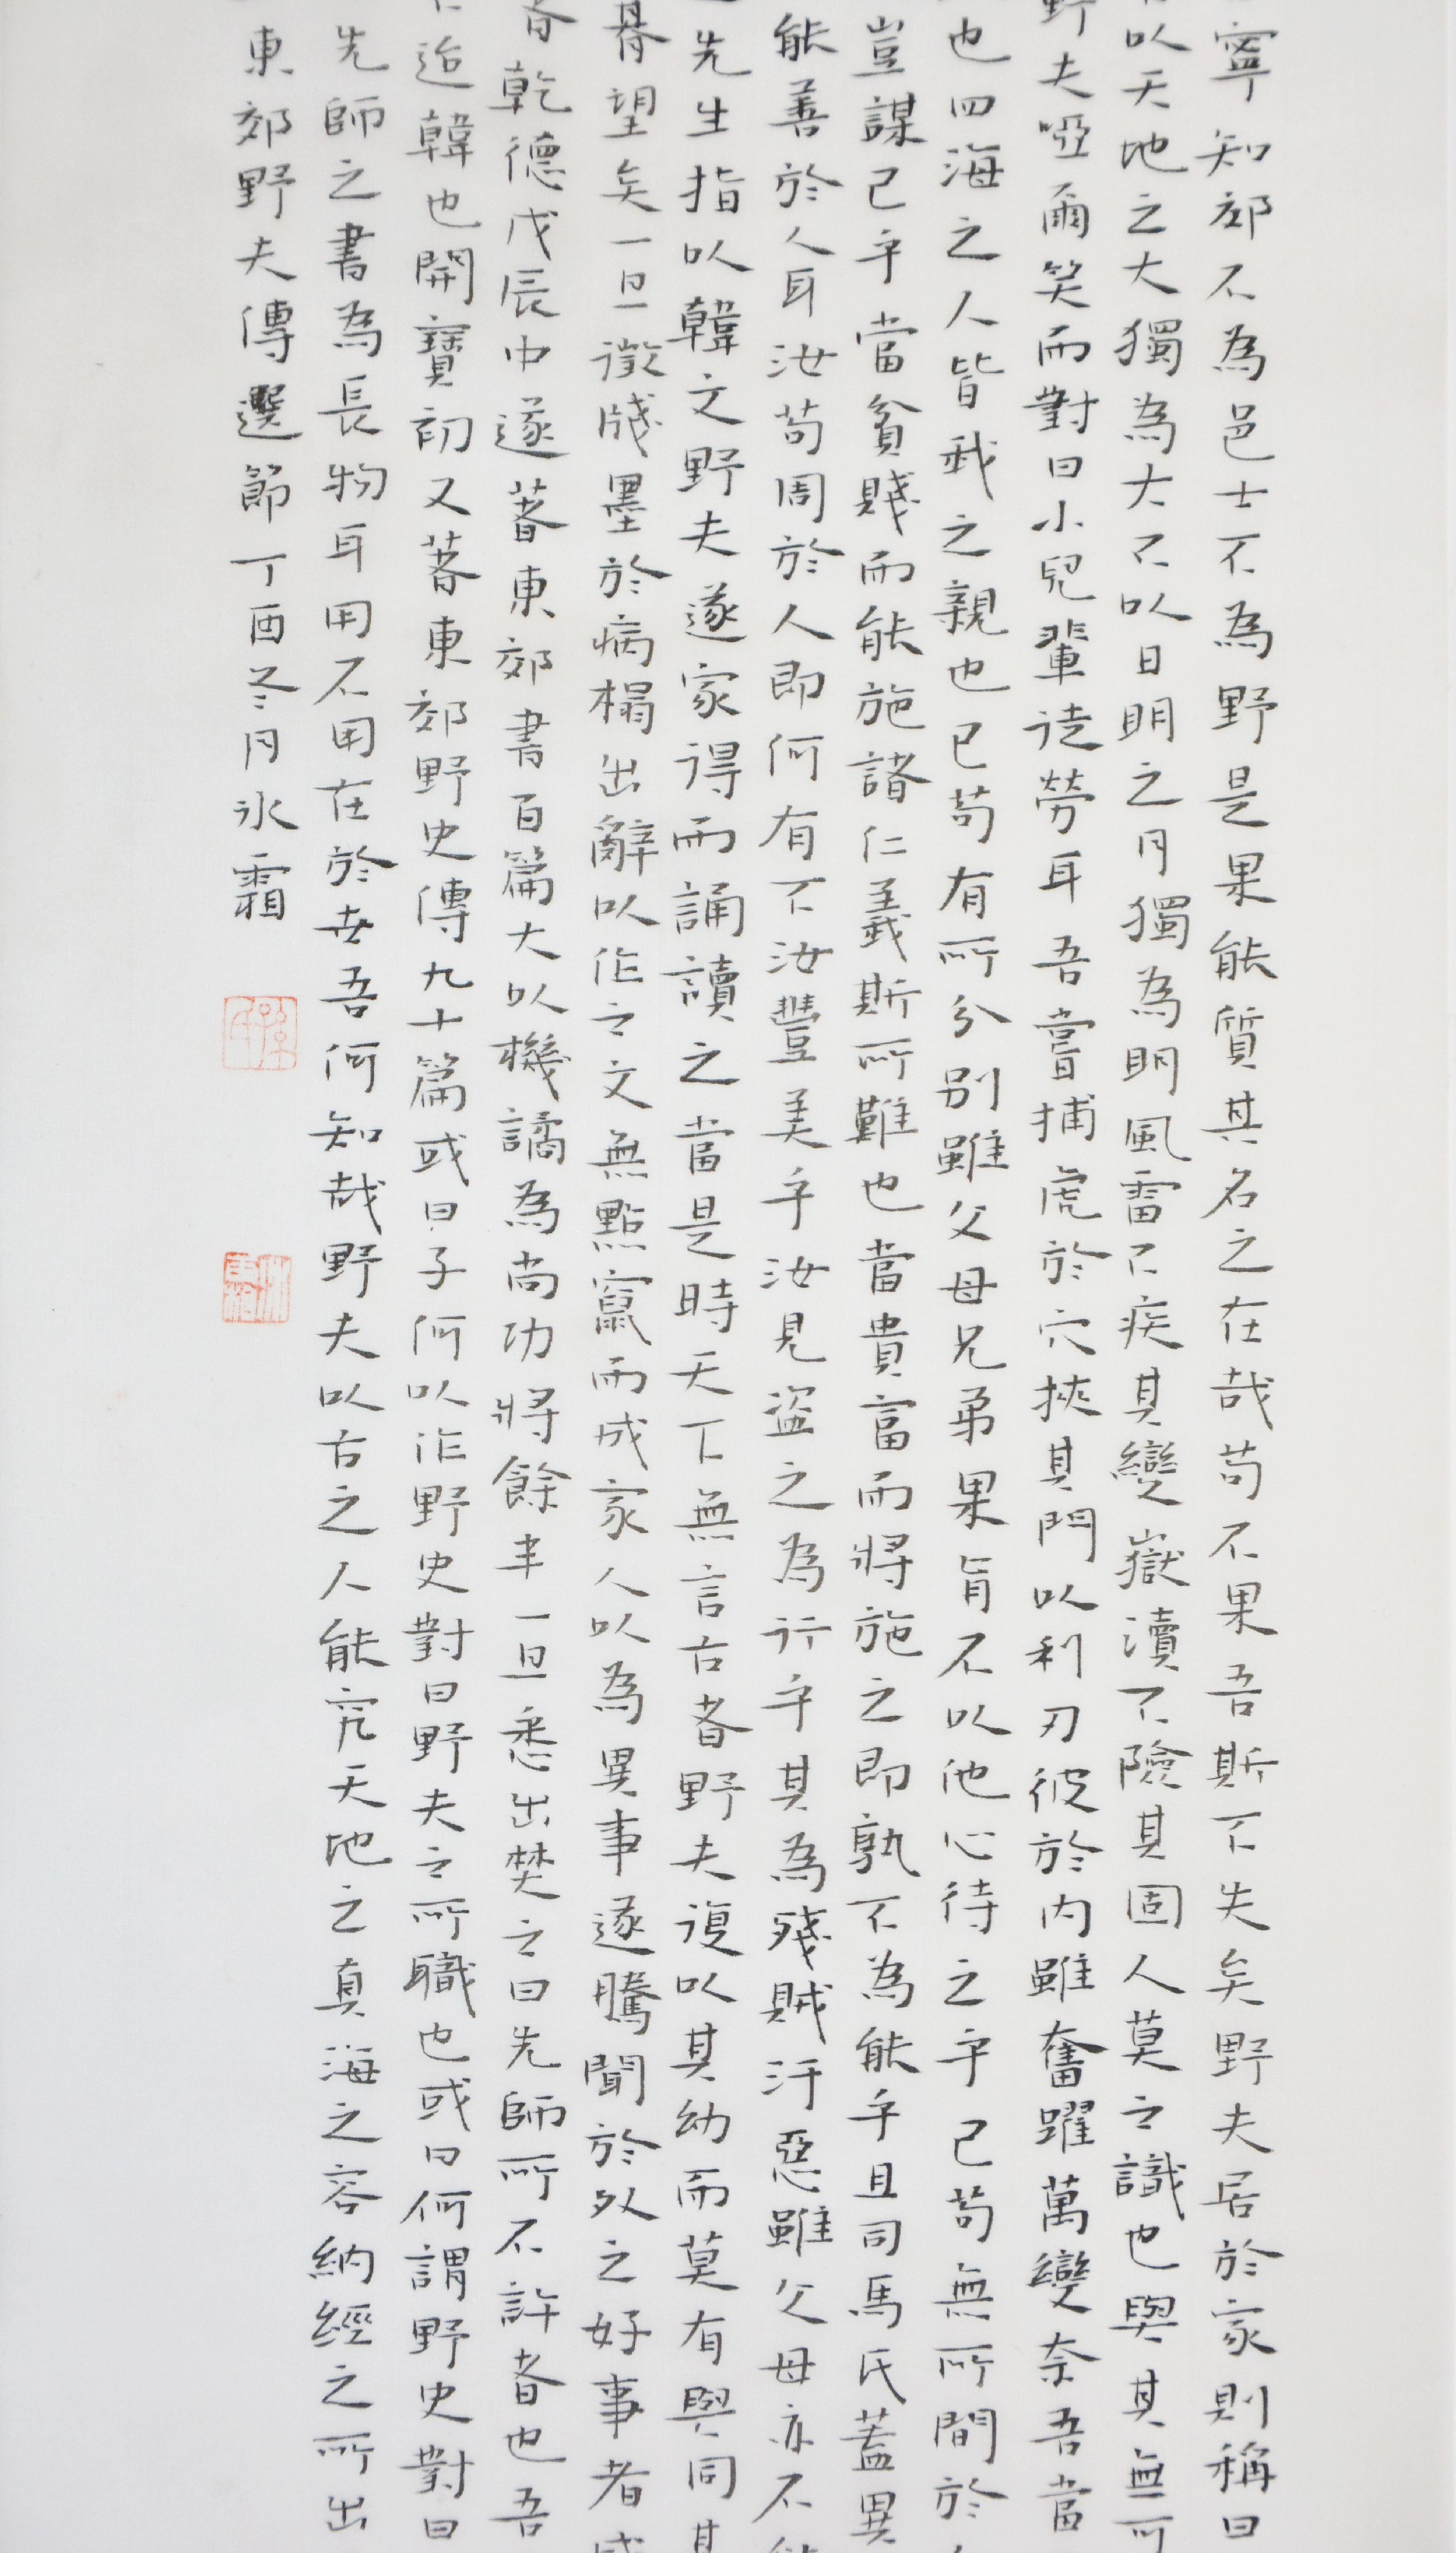 寧知郊不為邑士不為野是果能質其名之在哉苟不果吾斯不失矣野夫居於家則稱曰
以天地之大獨為大不以日明之月獨為明風雷不疾其變嶽瀆不險其固人莫之識也與其無可
野夫啞爾笑而對曰小兒輩徒勞耳吾嘗捕虎於穴挾其門以利刃彼於內雖奮躍萬變奈吾當
也四海之人皆我之親也已苟有所分別雖父母兄弟果肯不以他心待之乎已苟無所間於
豈謀已乎當貧賤而能施諸仁義斯所難也當貴富而將施之即孰不為能乎且司馬氏蓋異
能善於人耳汝苟周於人即何有不汝豐美乎汝見盜之為行乎其為殘賊汙惡雖父母亦不
先生指以韓文野夫遂家得而誦讀之當是時天下無言古者野夫復以其幼而莫有與同其
朞望矣一旦徵牋墨於病榻出辭以作之文無點竄而成家人以為異事遂騰聞於外之好事者咸
者乾德戊辰中遂著東郊書百篇大以機譎為尚功將餘半一旦悉出焚之曰先師所不許者也吾
迨韓也開寶初又著東郊野史傳九十篇或曰子何以作野史對曰野夫之所職也或曰何謂野史對曰
先師之書為長物耳用不用在於世吾何知哉野夫以古之人能究天地之真海之容納經之所出
東郊野夫傳選節丁酉冬月冰霜